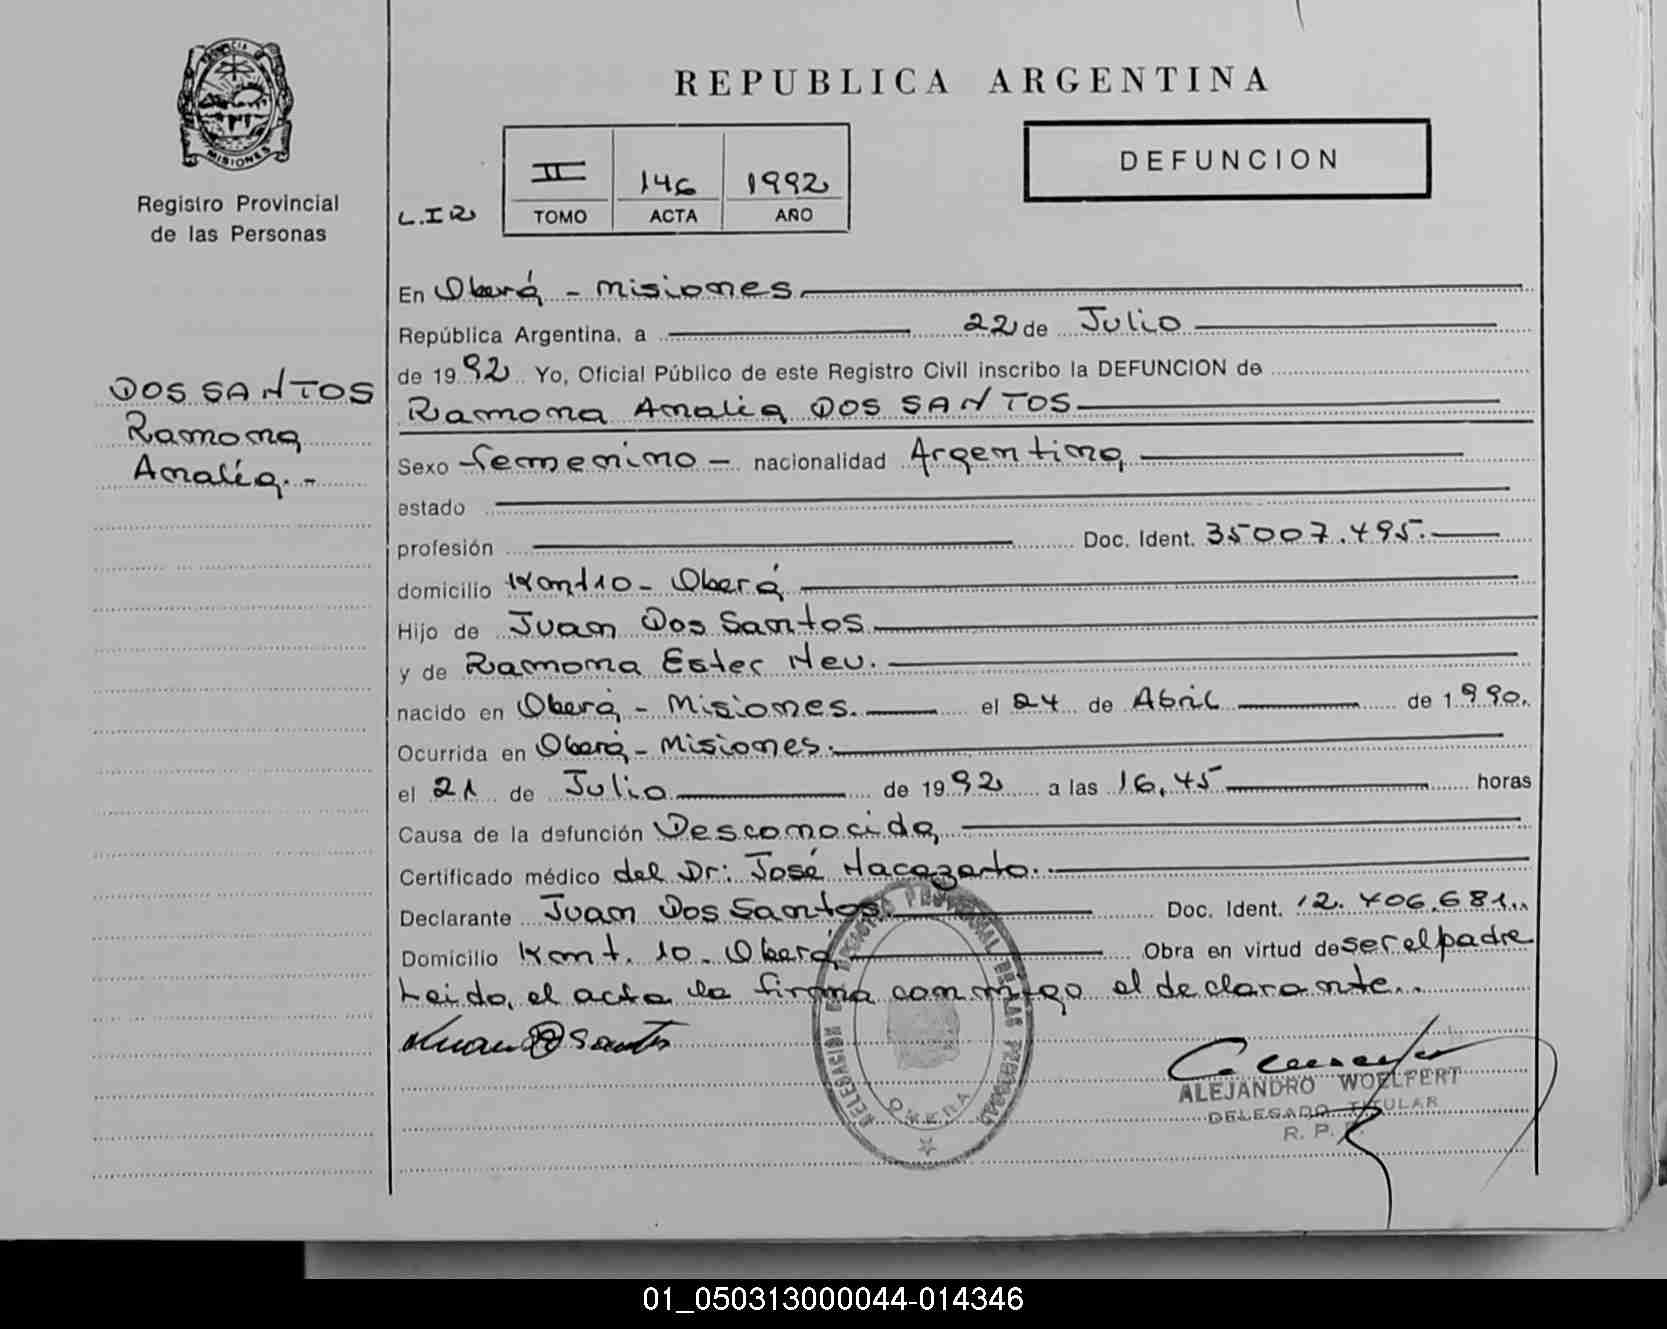 PROVINCIA DE
MISIONES
Registro Provincial
de las Personas
DOS SANTOS
Ramona
Amalia.-
REPUBLICA ARGENTINA
DEFUNCION
L.I2
II 146 1992
TOMO ACTA AÑO
En Oberá - Misiones
República Argentina, a 22 de Julio
de 1992 Yo, Oficial Público de este Registro Civil inscribo la DEFUNCION de
Ramona Amalia DOS SANTOS
Sexo femenino - nacionalidad Argentina
estado
profesión Doc. Ident. 35007.495.
domicilio Km 10 - Oberá
Hijo de Juan Dos Santos
y de Ramona Ester Neu.
nacido en Oberá - Misiones. el 24 de Abril de 1990.
Ocurrida en Oberá - Misiones.
el 21 de Julio de 1992 a las 16,45 horas
Causa de la defunción Desconocida
Certificado médico del Dr: José
Declarante Juan Dos Santos. Doc. Ident. 12.406.681..
Domicilio Km. 10 - Oberá Obra en virtud de ser el padre
Leido, el acta la firma conmigo el declarante..
Juan D Santos
DELEGACION REGISTRO PROVINCIAL DE LAS PERSONAS
OBERA
ALEJANDRO WOELFERT
DELEGADO TITULAR
R. P. P.
01_050313000044-014346